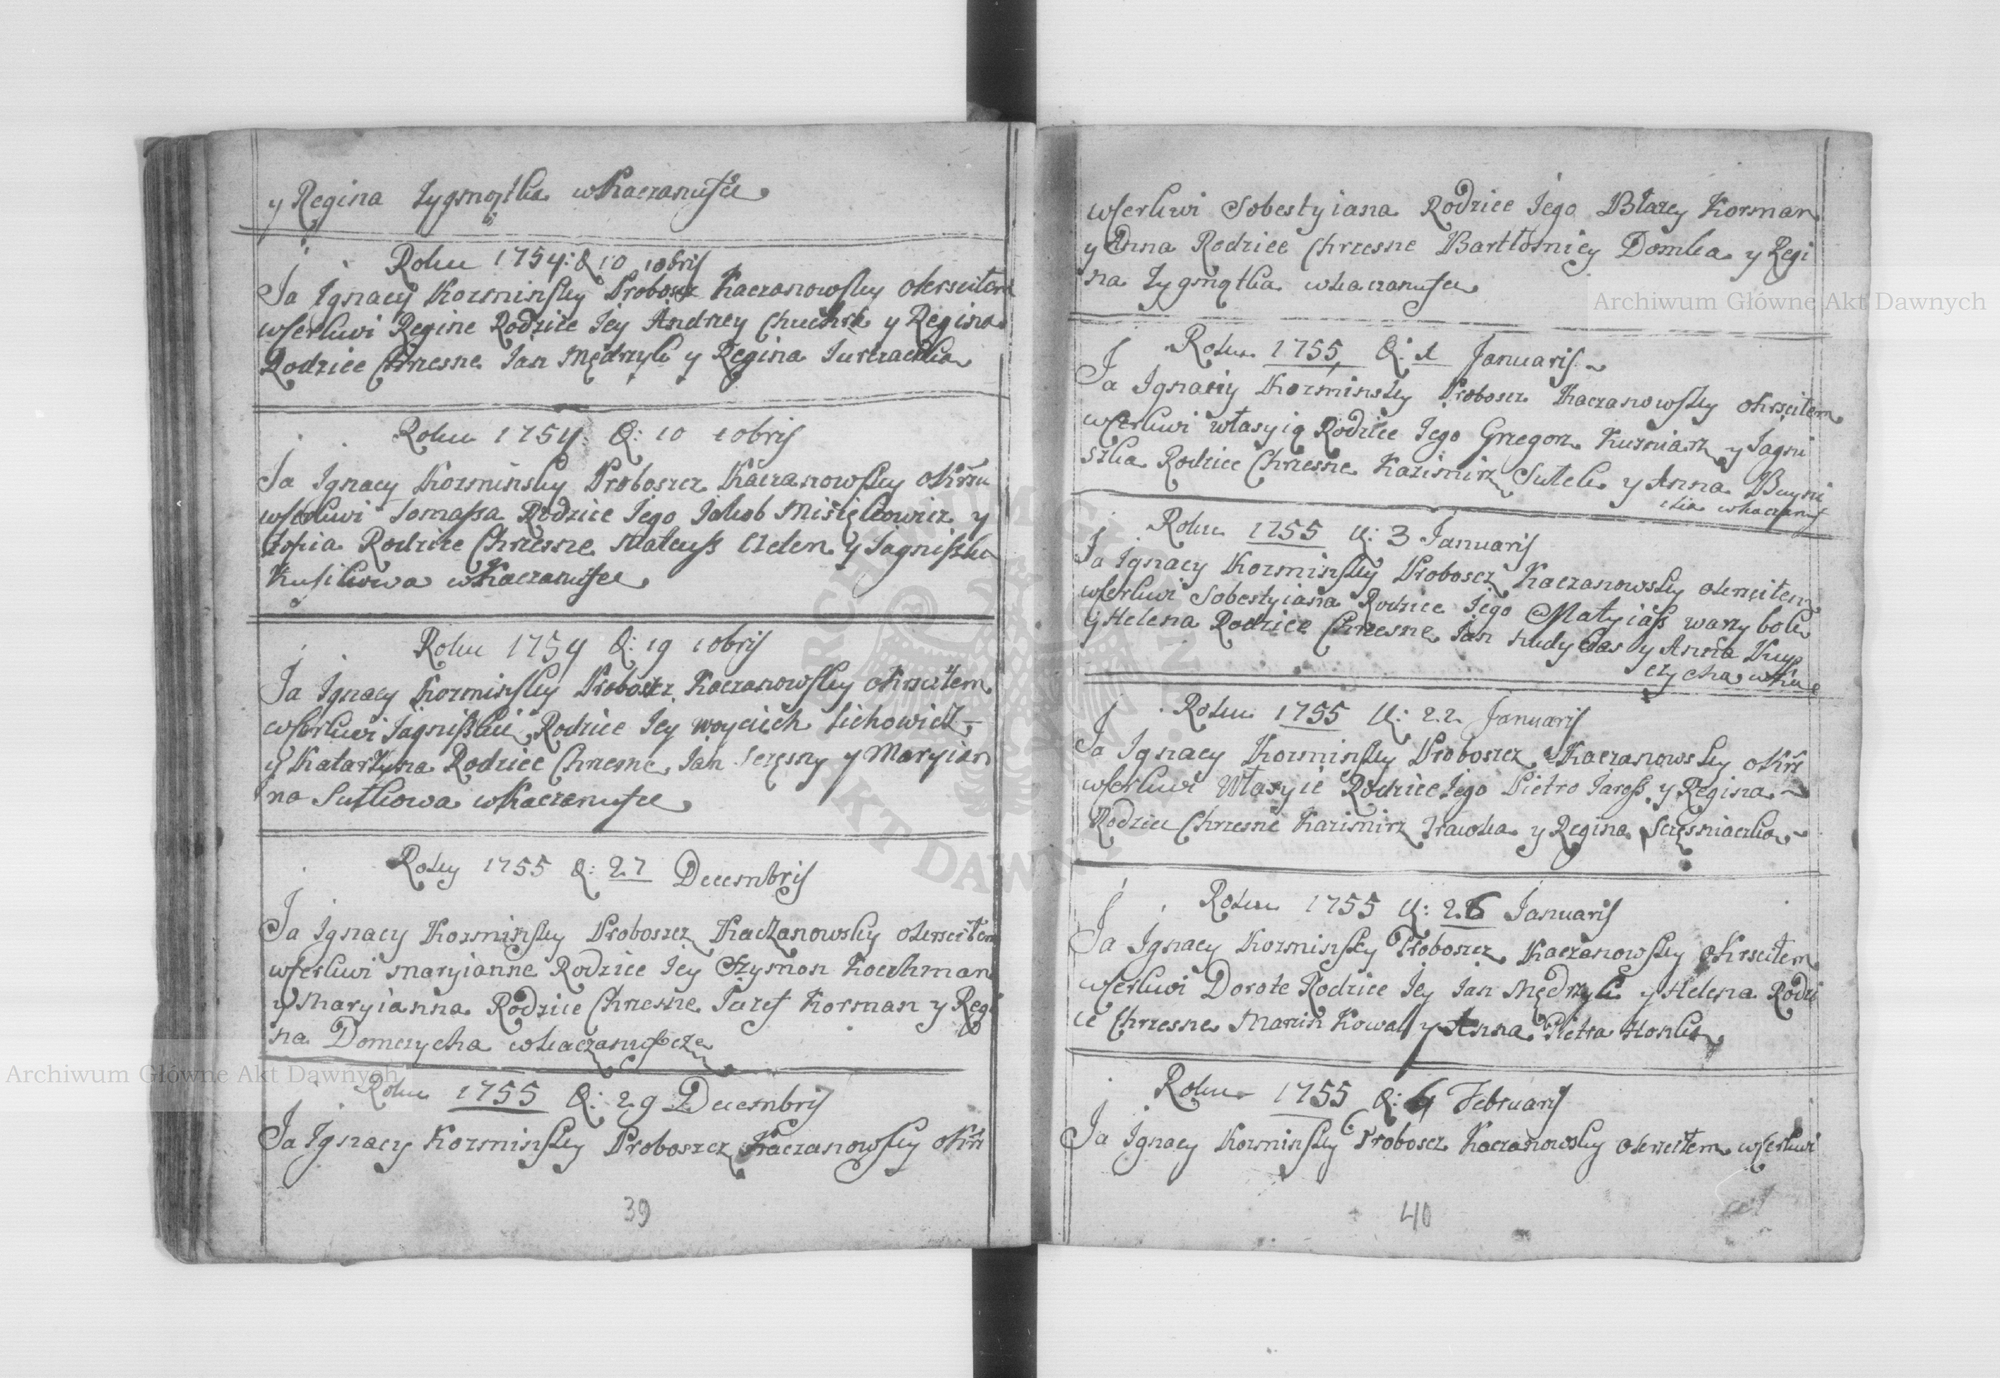 y Regina Zygmątka w Kaczanufce
Roku 1754: D 10 10bris
Ja Ignacy Kozminsky Probosz Kaczanowsky okrsciłem
w cerkwi Regine Rodzice Jey Andrzey Chuchrk y Regina
Rodzice Chrzesne Jan Mędrzyk y Regina Jurczaczka
Roku 1754 D: 10 10bris
Ja Ignacy Kozminsky Proboszcz Kaczanowsky okrzci
w cerkwi Tomassa Rodzice Jego Jakob Misiękowicz y
Zofia Rodzice Chrzesne Mateuss Uden y Jagniszka
Kusikowa w Kaczanufce
Roku 1754 D: 19 10bris
Ja Ignacy Kozminsky Proboszcz Kaczanowsky okrsciłem
w cerkwi Jagnisski Rodzice Jey Woyciech Lichowicz
y Katarzyna Rodzice Chrzesne Jan Szczęsny y Maryian
na Sutkowa w Kaczanufce
Roku 1755 D: 27 Decembris
Ja Ignacy Kozminsky Proboszcz Kaczanowsky okrsciłem
w cerkwi Maryianne Rodzice Jey Szymon Kochman
y Maryianna Rodzice Chrzesne Juzef Korman y Regi
na Domczycha w kaczanufcze
Roku 1755 D: 29 Decembris
Ja Ignacy Kozminsky Proboszcz Kaczanowsky okrś
39
w cerkwi Sobestyiana Rodzice Jego Błazey Korman
y Anna Rodzice Chrzesne Bartłomiey Domka y Regi
na Zygmątka w kaczanufce
Roku 1755 D: 1 Januaris
Ja Ignaciy Kozminsky Probosz Kaczanowsky okrsciłem
w cerkwi Własyią Rodzice Jego Grzegorz Kuzniarz y Jagni
szka Rodzice Chrzesne Kazimirz Sutek y Anna
Roku 1755 D: 3 Januaris
Ja Ignacy Kozminsky Proboscz Kaczanowsky okrsciłem
w cerkwi Sobestyiana Rodzice Jego Matyiass warybok
y Helena Rodzice Chrzesne Jan Rudy y Anna
Roku 1755 D: 22 Januaris
Ja Ignacy Kozminsky Proboszcz Kaczanowsky okrś
w cerkwi Własyie Rodzice Jego Pietro Jaross y Regina
Rodzice Chrzesne Kazimirz y Regina Szczęsniaczka
Roku 1755 D: 26 Januaris
Ja Ignacy Kozminsky Proboszcz Kaczanowsky okrsciłem
w cerkwi Dorote Rodzice Jey Jan Mędrzyk y Helena Rodzi
ce Chrzesne Marcin Kowal y Anna Pietra Honka
Roku 1755 D: 4 Februaris
Ja Ignacy Kozminsky Proboscz Kaczanowsky okrsciłem w cerkwi
40
Archiwum Główne Akt Dawnych
Archiwum Główne Akt Dawnych
Archiwum Główne Akt Dawnych